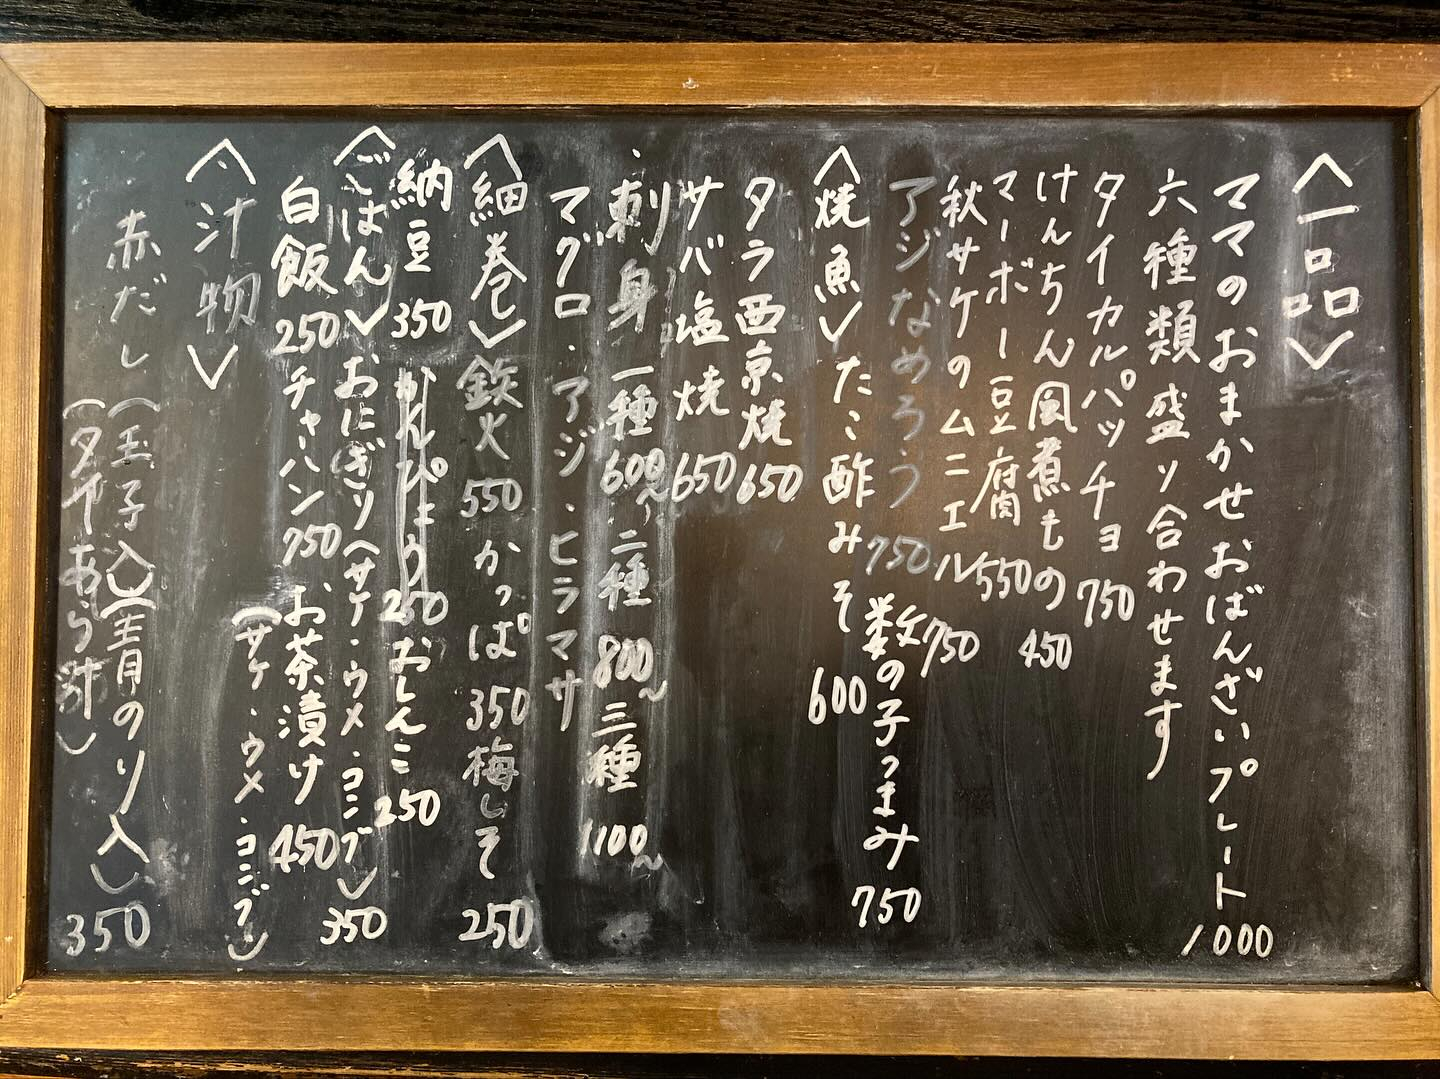 〈一品〉
ママのおまかせおばんざいプレート 1000
六種類盛り合わせます
タイカルパッチョ 750
けんちん風煮もの 450
マーボー豆腐 550
秋サケのムニエル 750
アジなめろう 750 数の子つまみ 750
〈焼魚〉 たこ酢みそ 600
タラ西京焼 650
サバ塩焼 650
・刺身 一種 600〜 二種 800〜 三種 1100〜
マグロ・アジ・ヒラマサ
〈細巻〉 鉄火 550 かっぱ 350 梅しそ 250
納豆 350 かんぴょう 250 おしんこ 250
〈ごはん〉 おにぎり (サケ・ウメ・コンブ) 350
白飯 250 チャーハン 750 お茶漬け 450
(サケ・ウメ・コンブ)
〈汁物〉
赤だし (玉子入) (青のり入) 350
(タイあら汁)